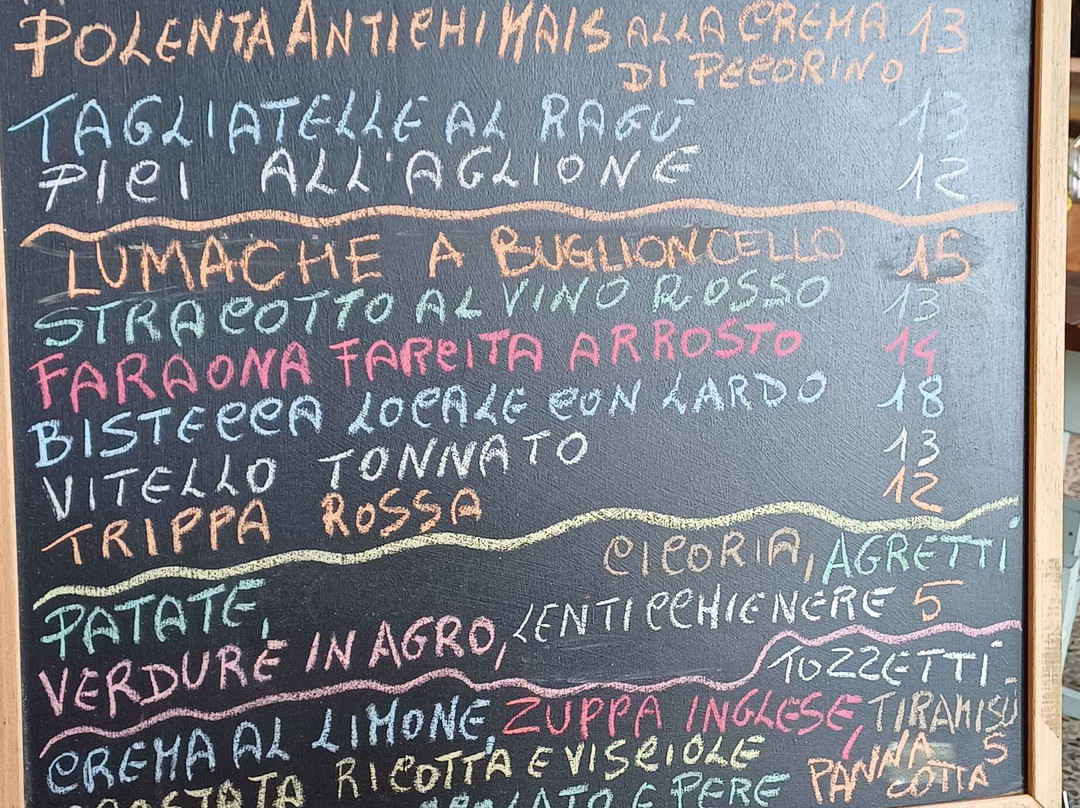 POLENTA ANTICHI MAIS ALLA CREMA 13
DI PECORINO
TAGLIATELLE AL RAGÙ 13
PICI ALL'AGLIONE 12
LUMACHE A BUGLIONCELLO 15
STRACOTTO AL VINO ROSSO 13
FARAONA FARCITA ARROSTO 14
BISTECCA LOCALE CON LARDO 18
VITELLO TONNATO 13
TRIPPA ROSSA 12
CICORIA, AGRETTI
PATATE,
VERDURE IN AGRO, LENTICCHIE NERE 5
TOZZETTI
CREMA AL LIMONE, ZUPPA INGLESE, TIRAMISÙ
CROSTATA RICOTTA E VISCIOLE PANNA COTTA 5
E PERE